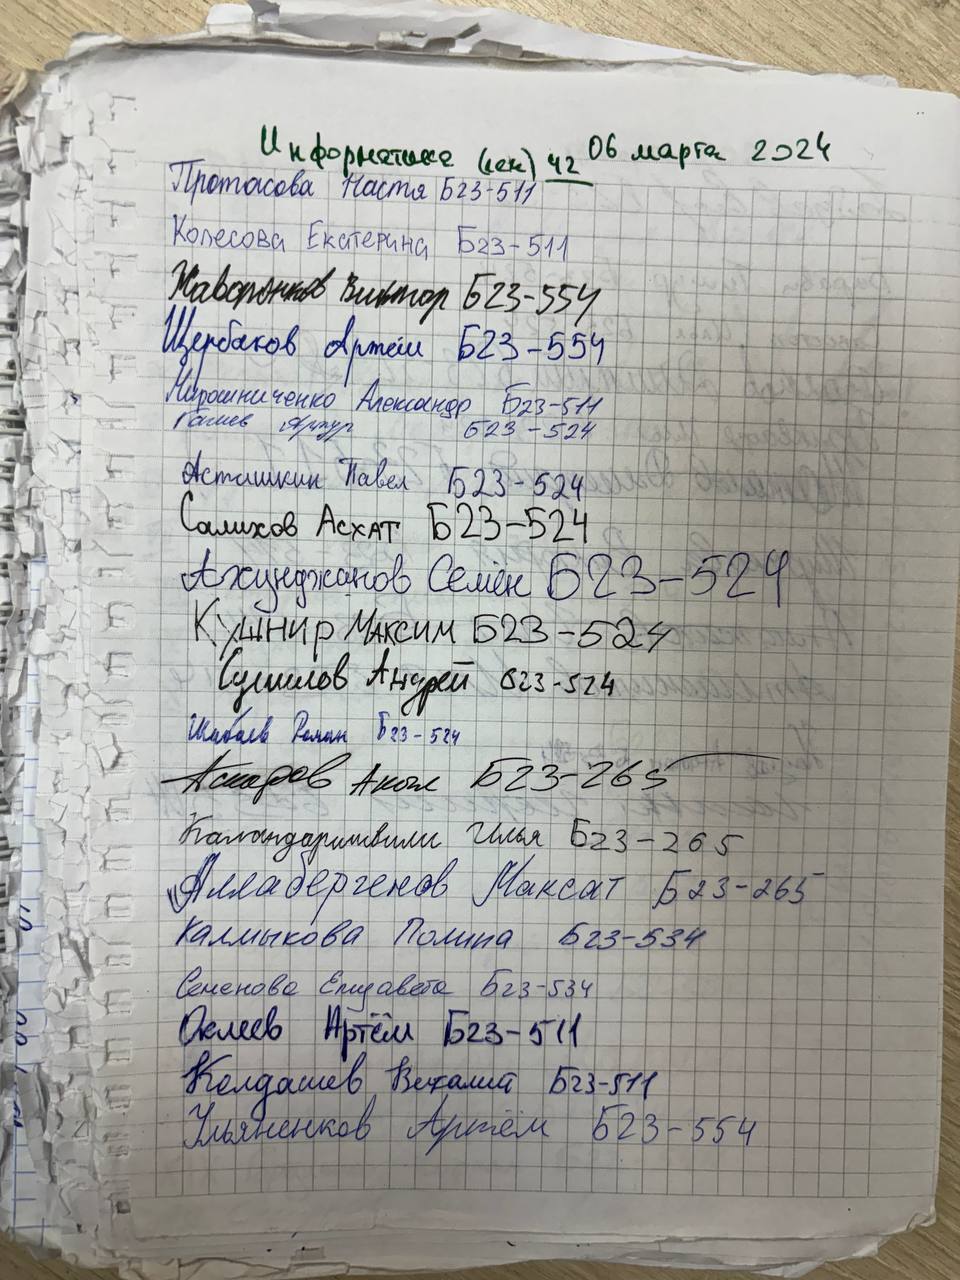 Информатика (лек) 42 06 марта 2024
Протасова Настя Б23-511
Колесова Екатерина Б23-511
Жаворонков Виктор Б23-554
Щербаков Артём Б23-554
Мирошниченко Александр Б23-511
Артур Б23-524
Асташкин Павел Б23-524
Салихов Асхат Б23-524
Ахунджанов Семён Б23-524
Кушнир Максим Б23-524
Андрей Б23-524
Шабаев Роман Б23-524
Аскаров Акыл Б23-265
Камондаришвили Илья Б23-265
Аллабергенов Максат Б23-265
Калмыкова Полина Б23-534
Семенова Елизавета Б23-534
Артём Б23-511
Колдашев Б23-511
Ульяненков Артём Б23-554